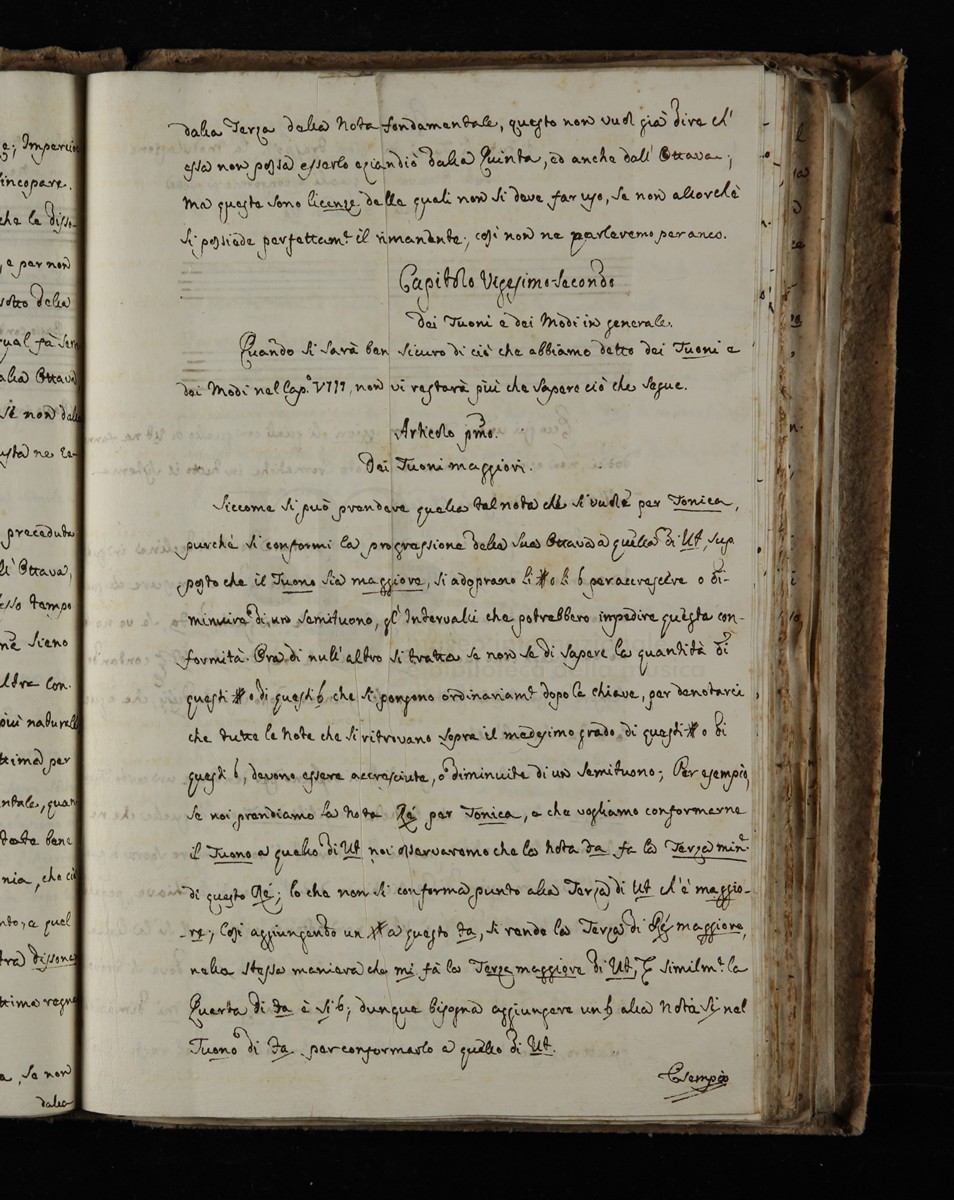 dalla Terza della Nota fondamentale, questo non vuol già dire ch'
essa non possa esserlo eziandiò dalla Quinta, ed anche dall' Ottava;
Ma queste sono licenze delle quali non si deve far uso, se non allorchè
si possiede perfettam.e il rimanente; così non ne parleremo per anco.
Capitolo Vigesimo-secondo
Dei Tuoni e dei Modi in generale.
Quando si sarà ben sicuro di ciò che abbiamo detto dei Tuoni e
dei Modi nel Cap.o VIII, non vi resterà più che sapere ciò che segue.
Articolo pmo.
Dei Tuoni maggiori.
Siccome si può prendere quella tal nota che si vuole per Tonica,
purchè si conformi la progressione della sua Ottava a quella di Ut, sup
posto che il Tuono sia maggiore, si adoprano li # o li b per accrescere o di-
minuire di un semituono, gl' Intervalli che potrebbero impedire questa con-
formità. Ora di null' altro si tratta se non se di sapere la quantità di
questi # o di questi b che si pongono ordinariam.e dopo la chiave, per denotarci
che tutte le Note che si ritrovano sopra il medesimo grado di questi # o di
questi b, devono essere accresciute, o diminuite di un semituono; Per esempio,
se noi prendiamo la nota Ré per Tonica, e che vogliamo conformarne
il Tuono a quello di Ut noi osservaremo che la nota fa fa la Terza min.e
di questo Ré; lo che non si conforma punto alla Terza di Ut ch'è maggio-
-re; Così aggiungendo un # a questo fa, si rende la Terza di Ré maggiore,
nella stessa maniera che mi fà la Terza maggiore di Ut, E similm.e la
Quarta di fa è si b; dunque bisogna aggiungere un b alla Nota Si nel
Tuono di fa per conformarlo a quello di Ut.
Esempio